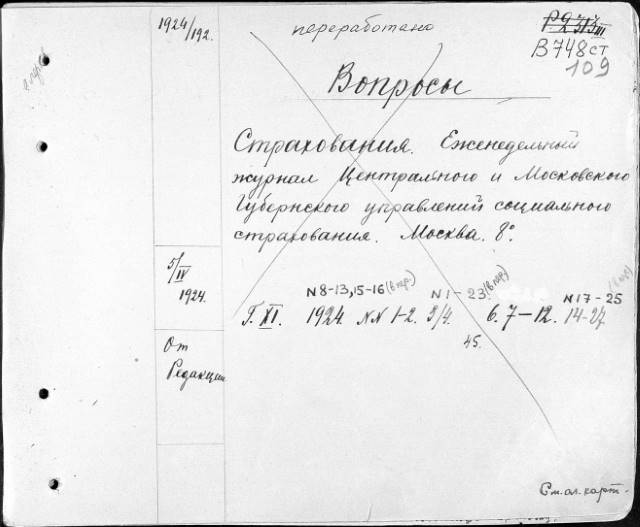 1924/192.
переработано
В748 ст
109
Вопросы
Страхования. Еженедельный
журнал Центрального и Московского
Губернского управлений социального
страхования. Москва. 8°.
5/IV
1924.
N 8-13, 15-16 (в пер)
N 1-23 (в пер)
N 17-25 (в пер)
Г. XI. 1924. NN 1-2. 3/4. 6. 7-12. 14-27
45.
От
Редакции
См. ал. карт.